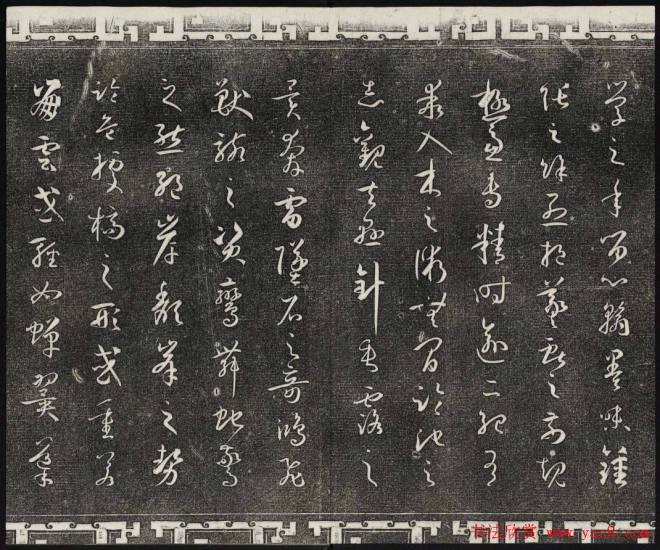 學之年留心翰墨味鍾
張之餘烈挹羲獻之前規
極慮專精時逾二紀有
乖入木之術無間臨池之
志觀夫懸針垂露之
異奔雷墜石之奇鴻飛
獸駭之資鸞舞蛇驚
之態絕岸頹峯之勢
臨危據槁之形或重若
崩雲或輕如蟬翼導
书法欣赏
www.yac8.com